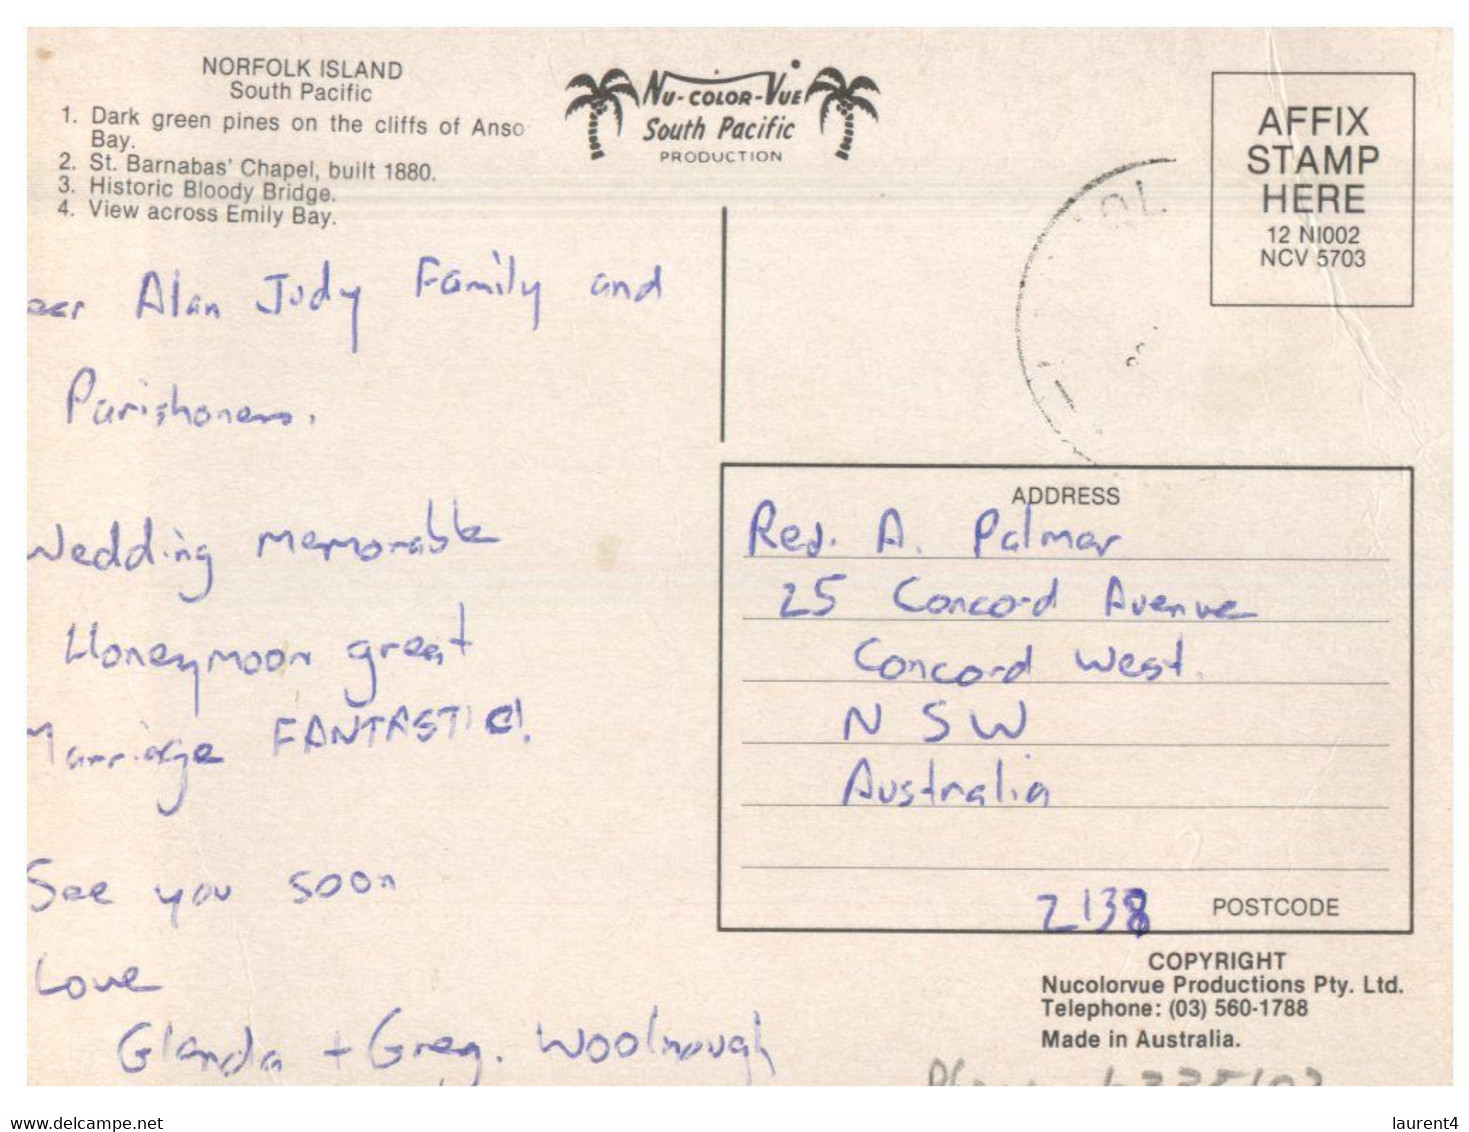 NORFOLK ISLAND
South Pacific
1. Dark green pines on the cliffs of Anso
Bay.
2. St. Barnabas' Chapel, built 1880.
3. Historic Bloody Bridge.
4. View across Emily Bay.
NU-COLOR-VUE
South Pacific
PRODUCTION
AFFIX
STAMP
HERE
12 NI002
NCV 5703
ear Alan Judy Family and
Parishoners.
Wedding memorable
Honeymoon great
Marriage FANTASTIC!
See you soon
Love
Glenda + Greg. Woolnough
ADDRESS
Red. A. Palmer
25 Concord Avenue
Concord West.
N S W
Australia
2138 POSTCODE
COPYRIGHT
Nucolorvue Productions Pty. Ltd.
Telephone: (03) 560-1788
Made in Australia.
www.delcampe.net
laurent4